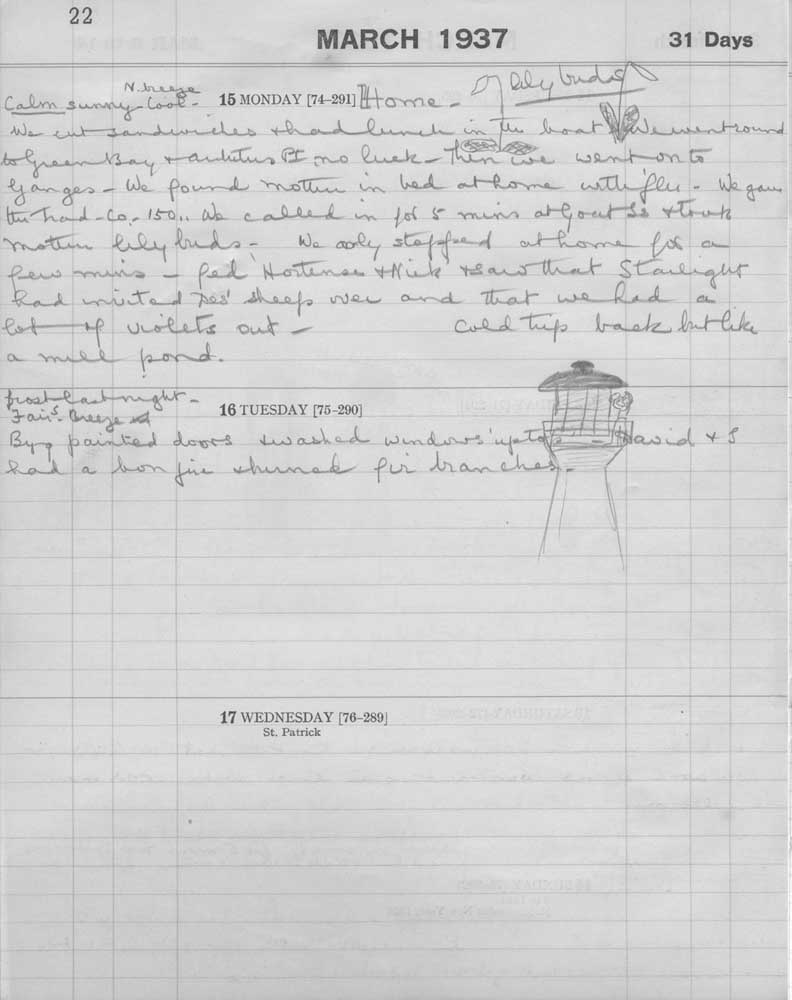 22
MARCH 1937
31 Days
N. breeze
Calm sunny Cool -
15 MONDAY [74–291] Home -
lily buds
We cut sandwiches & had lunch in the boat We went round
to Green Bay & Pt. no luck - Then we went on to
Ganges - We found mother in bed at home with flu - We gave
the Trad - Co. - 150 .. We called in for 5 mins at Goat Is & took
mother lily buds - We only stopped at home for a
few mins - fed Hortense & Nick & saw that Starlight
had invited Des' sheep over and that we had a
lot of violets out - cold trip back but like
a mill pond.
frost last night -
Fair S. Breeze
16 TUESDAY [75–290]
painted doors & washed windows - David & I
had a bon fire & burned fir branches -
17 WEDNESDAY [76–289]
St. Patrick